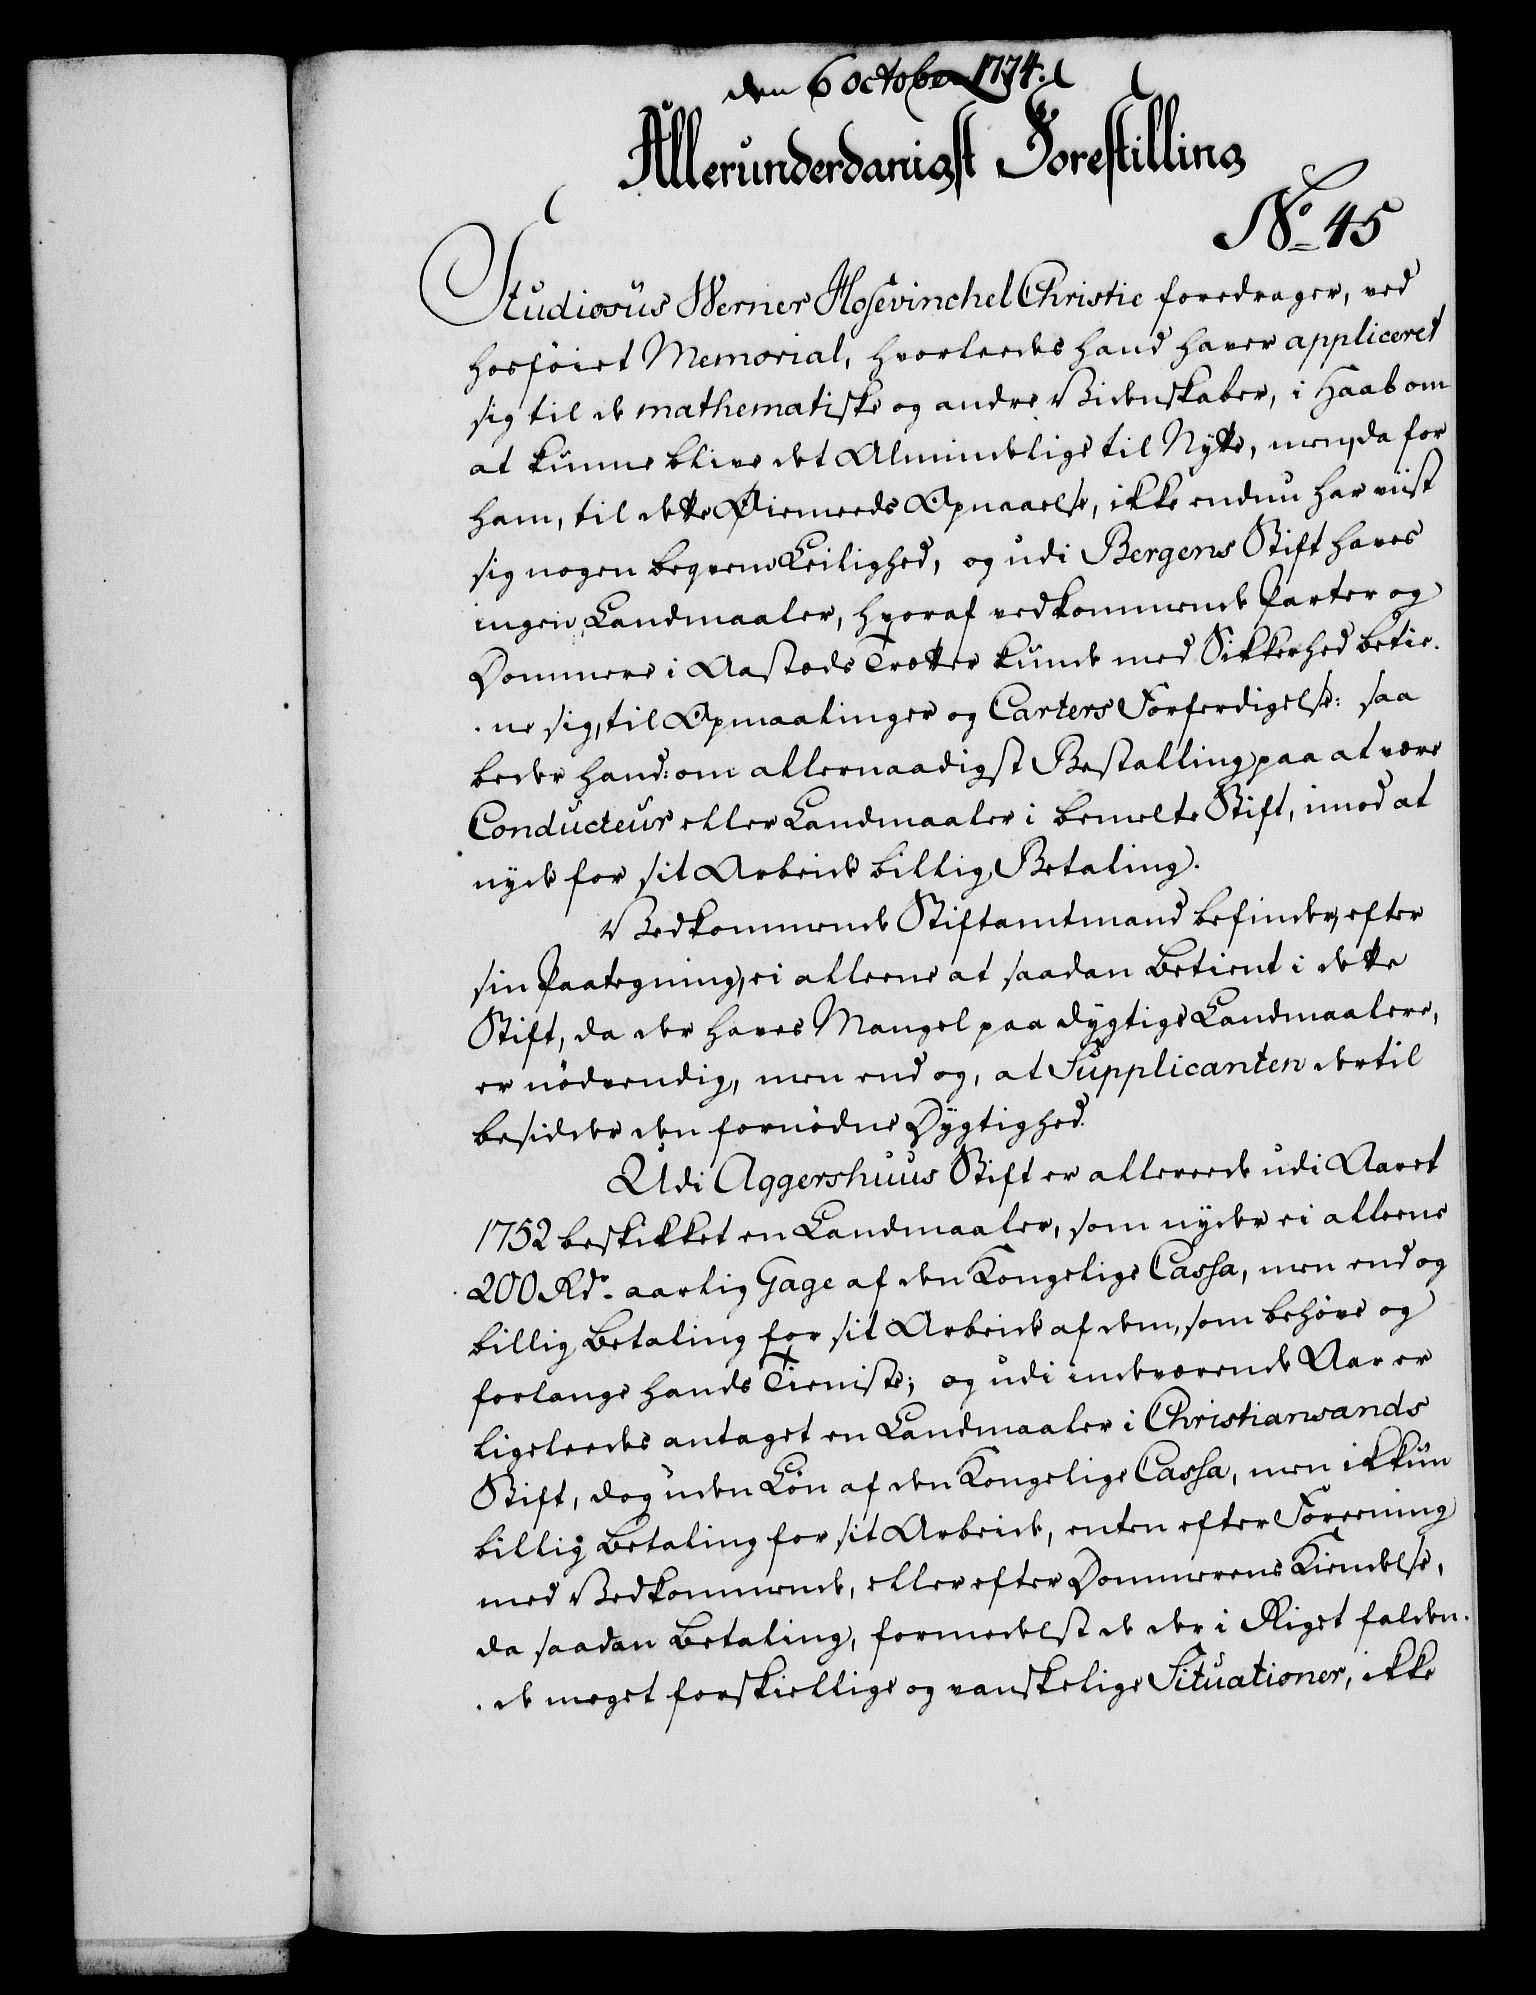 den 6 october 1774.
Allerunderdanigst Forestilling
No 45
Studiosus Werner Hosevinchel Christie foredrager, ved
hosföiet Memorial, hvorleedes hand haver appliceret
sig til de mathematiske og andre Videnskaber, i Haab om
at kunne blive det Almindelige til Nytte, men, da for
ham, til dette Øiemeeds Opnaaelse, ikke endnu har viist
sig nogen beqvem Leilighed, og udi Bergens Stift haves
ingen Landmaaler, hvoraf vedkommende Parter og
Dommere i Aastæds Trætter kunde med Sikkerhed betie-
-ne sig, til Opmaalinger og Carters Forferdigelse: saa
beder hand: om allernaadigst Bestalling paa at være
Conducteur eller Landmaaler i bemelte Stift, imod at
nyde for sit Arbeide billig Betaling.
Vedkommende Stiftamtmand befinder, efter
sin Paategning, ei alleene at saadan Betient i dette
Stift, da der haves Mangel paa dygtige Landmaalere,
er nödvendig, men end og, at Supplicanten dertil
besidder den fornödne Dygtighed.
Udi Aggershuus Stift er allereede udi Aaret
1752 beskikket en Landmaaler, som nyder ei alleene
200 Rd. aarlig Gage af den Kongelige Cassa, men end og
billig Betaling for sit Arbeide af dem, som behöve og
forlange hands Tieniste; og udi indeværende Aar er
ligeleedes antaget en Landmaaler i Christiansands
Stift, dog uden Lön af den Kongelige Cassa, men ikkun
billig Betaling for sit Arbeide, enten efter Foreening
med Vedkommende, eller efter Dommerens Kiendelse,
da saadan Betaling, formedelst de der i Riget falden-
-de meget forskiellige og vanskelige Situationer, ikke